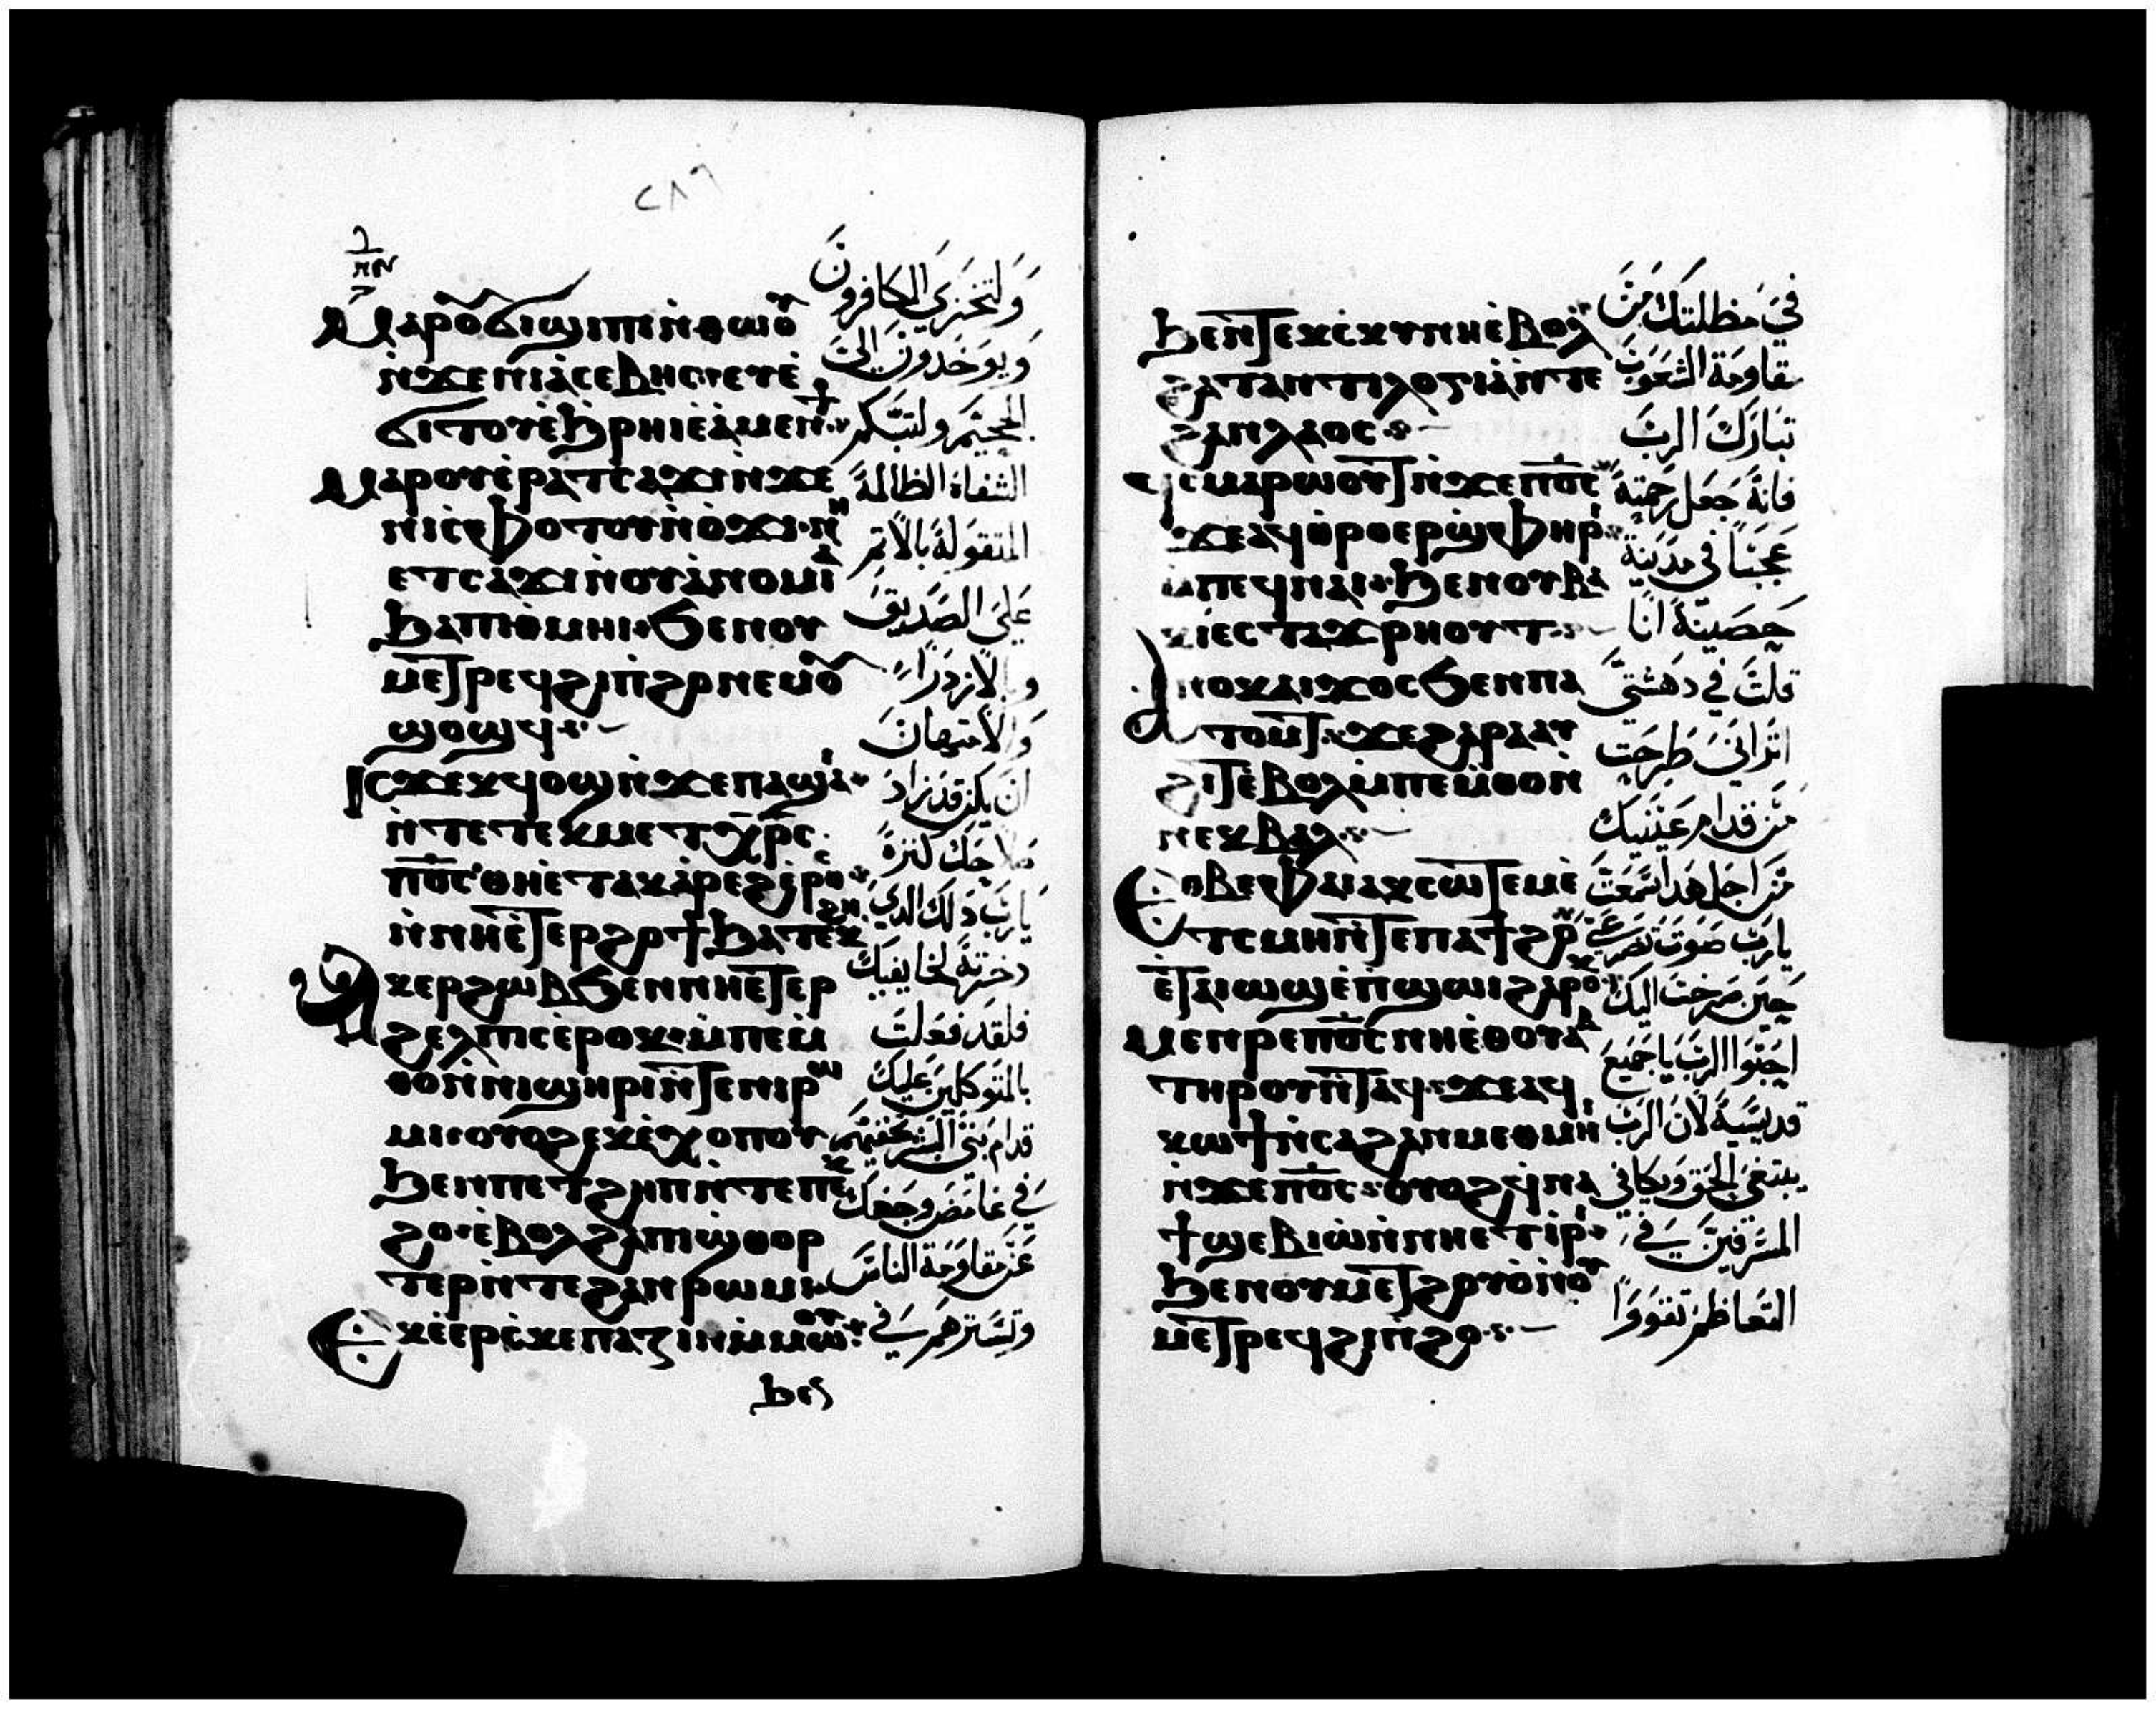 ⲙⲁⲣⲟⲩϭⲓϣⲓⲡⲓ ⲛⲑⲱⲟⲩ
ⲛϫⲉ ⲛⲓⲁⲥⲉⲃⲏⲥ ⲟⲩⲉⲩⲉ
ϭⲓⲧⲟⲩ ⲉϧⲣⲏⲓ ⲉⲁⲙⲉⲛϯ
ⲙⲁⲣⲟⲩⲉⲣⲁⲧⲥⲁϫⲓ ⲛϫⲉ
ⲛⲓⲥⲫⲟⲧⲟⲩ ⲛⲟϫⲓ ⲛⲏ
ⲉⲧⲥⲁϫⲓ ⲛⲟⲩⲁⲛⲟⲙⲓⲁ
ϧⲁ ⲡⲓⲑⲙⲏⲓ ϭⲉⲛ ⲟⲩ
ⲙⲉⲧⲣⲉϥϩⲓⲡϩⲟ ⲛⲉⲙ ⲟⲩ
ϣⲟϣϥ
ⲓⲥϫⲉ ϫϥⲟϣ ⲛϫⲉ ⲡⲁϣⲁⲓ
ⲛⲧⲉ ⲧⲉⲕⲙⲉⲧⲭⲣⲥ
ⲡⲟⲥ ⲑⲏ ⲉⲧⲁⲕⲁⲣⲉϩ ⲉⲣⲟⲥ
ⲛⲛⲏ ⲉⲧⲉⲣϩⲟϯ ϧⲁⲧⲉⲕϩⲏ
ⲁⲕⲉⲣϩⲱⲃ ϭⲉⲛ ⲛⲏ ⲉⲧⲉⲣ
ϩⲉⲗⲡⲓⲥ ⲉⲣⲟⲕ ⲙⲡⲉⲙ
ⲑⲟⲛ ⲛⲓϣⲏⲣⲓ ⲛⲧⲉ ⲛⲓⲣⲱ
ⲙⲓ ⲟⲩⲟϩ ⲉⲕⲉⲭⲟⲡⲟⲩ
ϧⲉⲛ ⲡⲉⲧϩⲏⲡ ⲛⲧⲉ ⲡⲉⲕ
ϩⲟ ⲉⲃⲟⲗ ϩⲁ ⲡϣⲑⲟⲣ
ⲧⲉⲣ ⲛⲧⲉ ϩⲁⲛⲣⲱⲙⲓ
ⲉⲕⲉⲉⲣⲥⲕⲉⲡⲁⲍⲓⲛ ⲙⲙⲱⲟⲩ
ϧⲉⲛ
ولتخزي الكافرون
ويوخدون الى
الجحيم ولتبكم
الشفاة الظالمة
المتقوله بالاثم
على الصديق
والازدراء
والامتهان
ان يكن قد زاد
صلاحك كثرة
يارب دلك الدي
دخرته لخايفيك
فلقد فعلت
بالمتوكلين عليك
قدام بني البشر تخفيهم
في غامض وجهك
عن مقاومة الناس
وتسترهم في
ϧⲉⲛ ⲧⲉⲕⲥⲕⲩⲛⲏ ⲉⲃⲟⲗ
ϩⲁ ⲧⲁⲛⲧⲓⲗⲟⲅⲓⲁ ⲛⲧⲉ
ϩⲁⲛⲗⲁⲟⲥ
ϥⲥⲙⲁⲣⲱⲟⲩⲧ ⲛϫⲉ ⲡⲟⲥ
ϫⲉ ⲁϥⲑⲣⲟ ⲉⲣϣⲫⲏⲣⲓ
ⲙⲡⲉϥⲛⲁⲓ ϧⲉⲛ ⲟⲩⲃⲁ
ⲕⲓ ⲉⲥⲧⲁϫⲣⲏⲟⲩⲧ
ⲁⲛⲟⲕ ⲁⲓϫⲟⲥ ϭⲉⲛ ⲡⲁ
ⲧⲟⲙⲧ ϫⲉ ϩⲁⲣⲁ ⲁⲩ
ϩⲓⲧ ⲉⲃⲟⲗ ⲙⲡⲉⲙⲑⲟ ⲛ
ⲛⲉⲕⲃⲁⲗ
ⲉⲑⲃⲉ ⲫⲁⲓ ⲁⲕⲥⲱⲧⲉⲙ ⲉ
ⲧⲥⲙⲏ ⲛⲧⲉ ⲡⲁⲧϩⲟ
ⲉⲧⲁⲓⲱϣ ⲉⲡϣⲱⲓ ϩⲁⲣⲟⲕ
ⲙⲉⲛⲣⲉ ⲡⲟⲥ ⲛⲏ ⲉⲑⲟⲩⲁⲃ
ⲧⲏⲣⲟⲩ ⲛⲧⲁϥ ϫⲉ ⲁϥ
ⲕⲱϯ ⲛⲥⲁ ϩⲁⲛⲙⲉⲑⲙⲏⲓ
ⲛϫⲉ ⲡⲟⲥ ⲟⲩⲟϩ ϥⲛⲁ
ϯϣⲉⲃⲓⲱ ⲛⲛⲏ ⲉⲧⲓⲣⲓ
ϧⲉⲛ ⲟⲩⲙⲉⲧϩⲟⲩⲟ ⲛⲟⲩ
ⲙⲉⲧⲣⲉϥϩⲓⲡϩⲟ
في مظلتك من
مقاومة الشعوب
تبارك الرب
فانه جعل رحمته
عجبا في مدينة
حصينه انا
قلت في دهشتي
اتراني طرحت
من قدام عينيك
من اجل هدا سمعت
يارب صوت تضرعي
حين صرخت اليك
احبوا الرب يا جميع
قديسيه لان الرب
يبتغي الحق ويكافي
المسرفين في
التعاظم تقووا